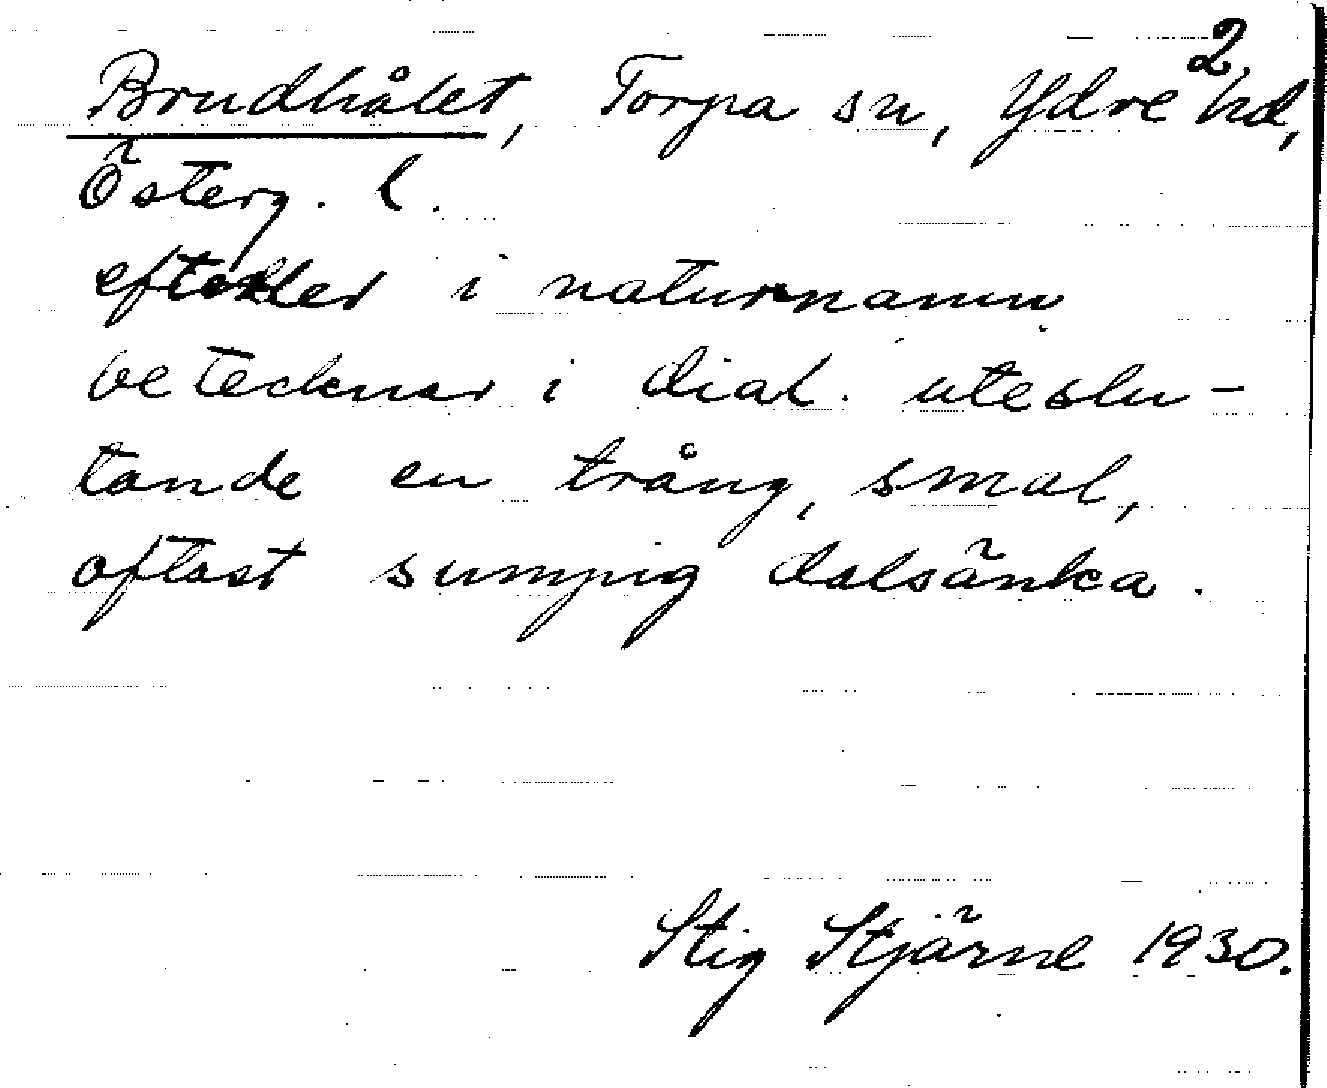 2
Brudhålet, Torpa sn, Ydre hd,
Österg. l.
efterled i naturnamn
betecknar i dial. uteslu-
tande en trång, smal,
oftast sumpig dalsänka.
Stig Stjärne 1930.